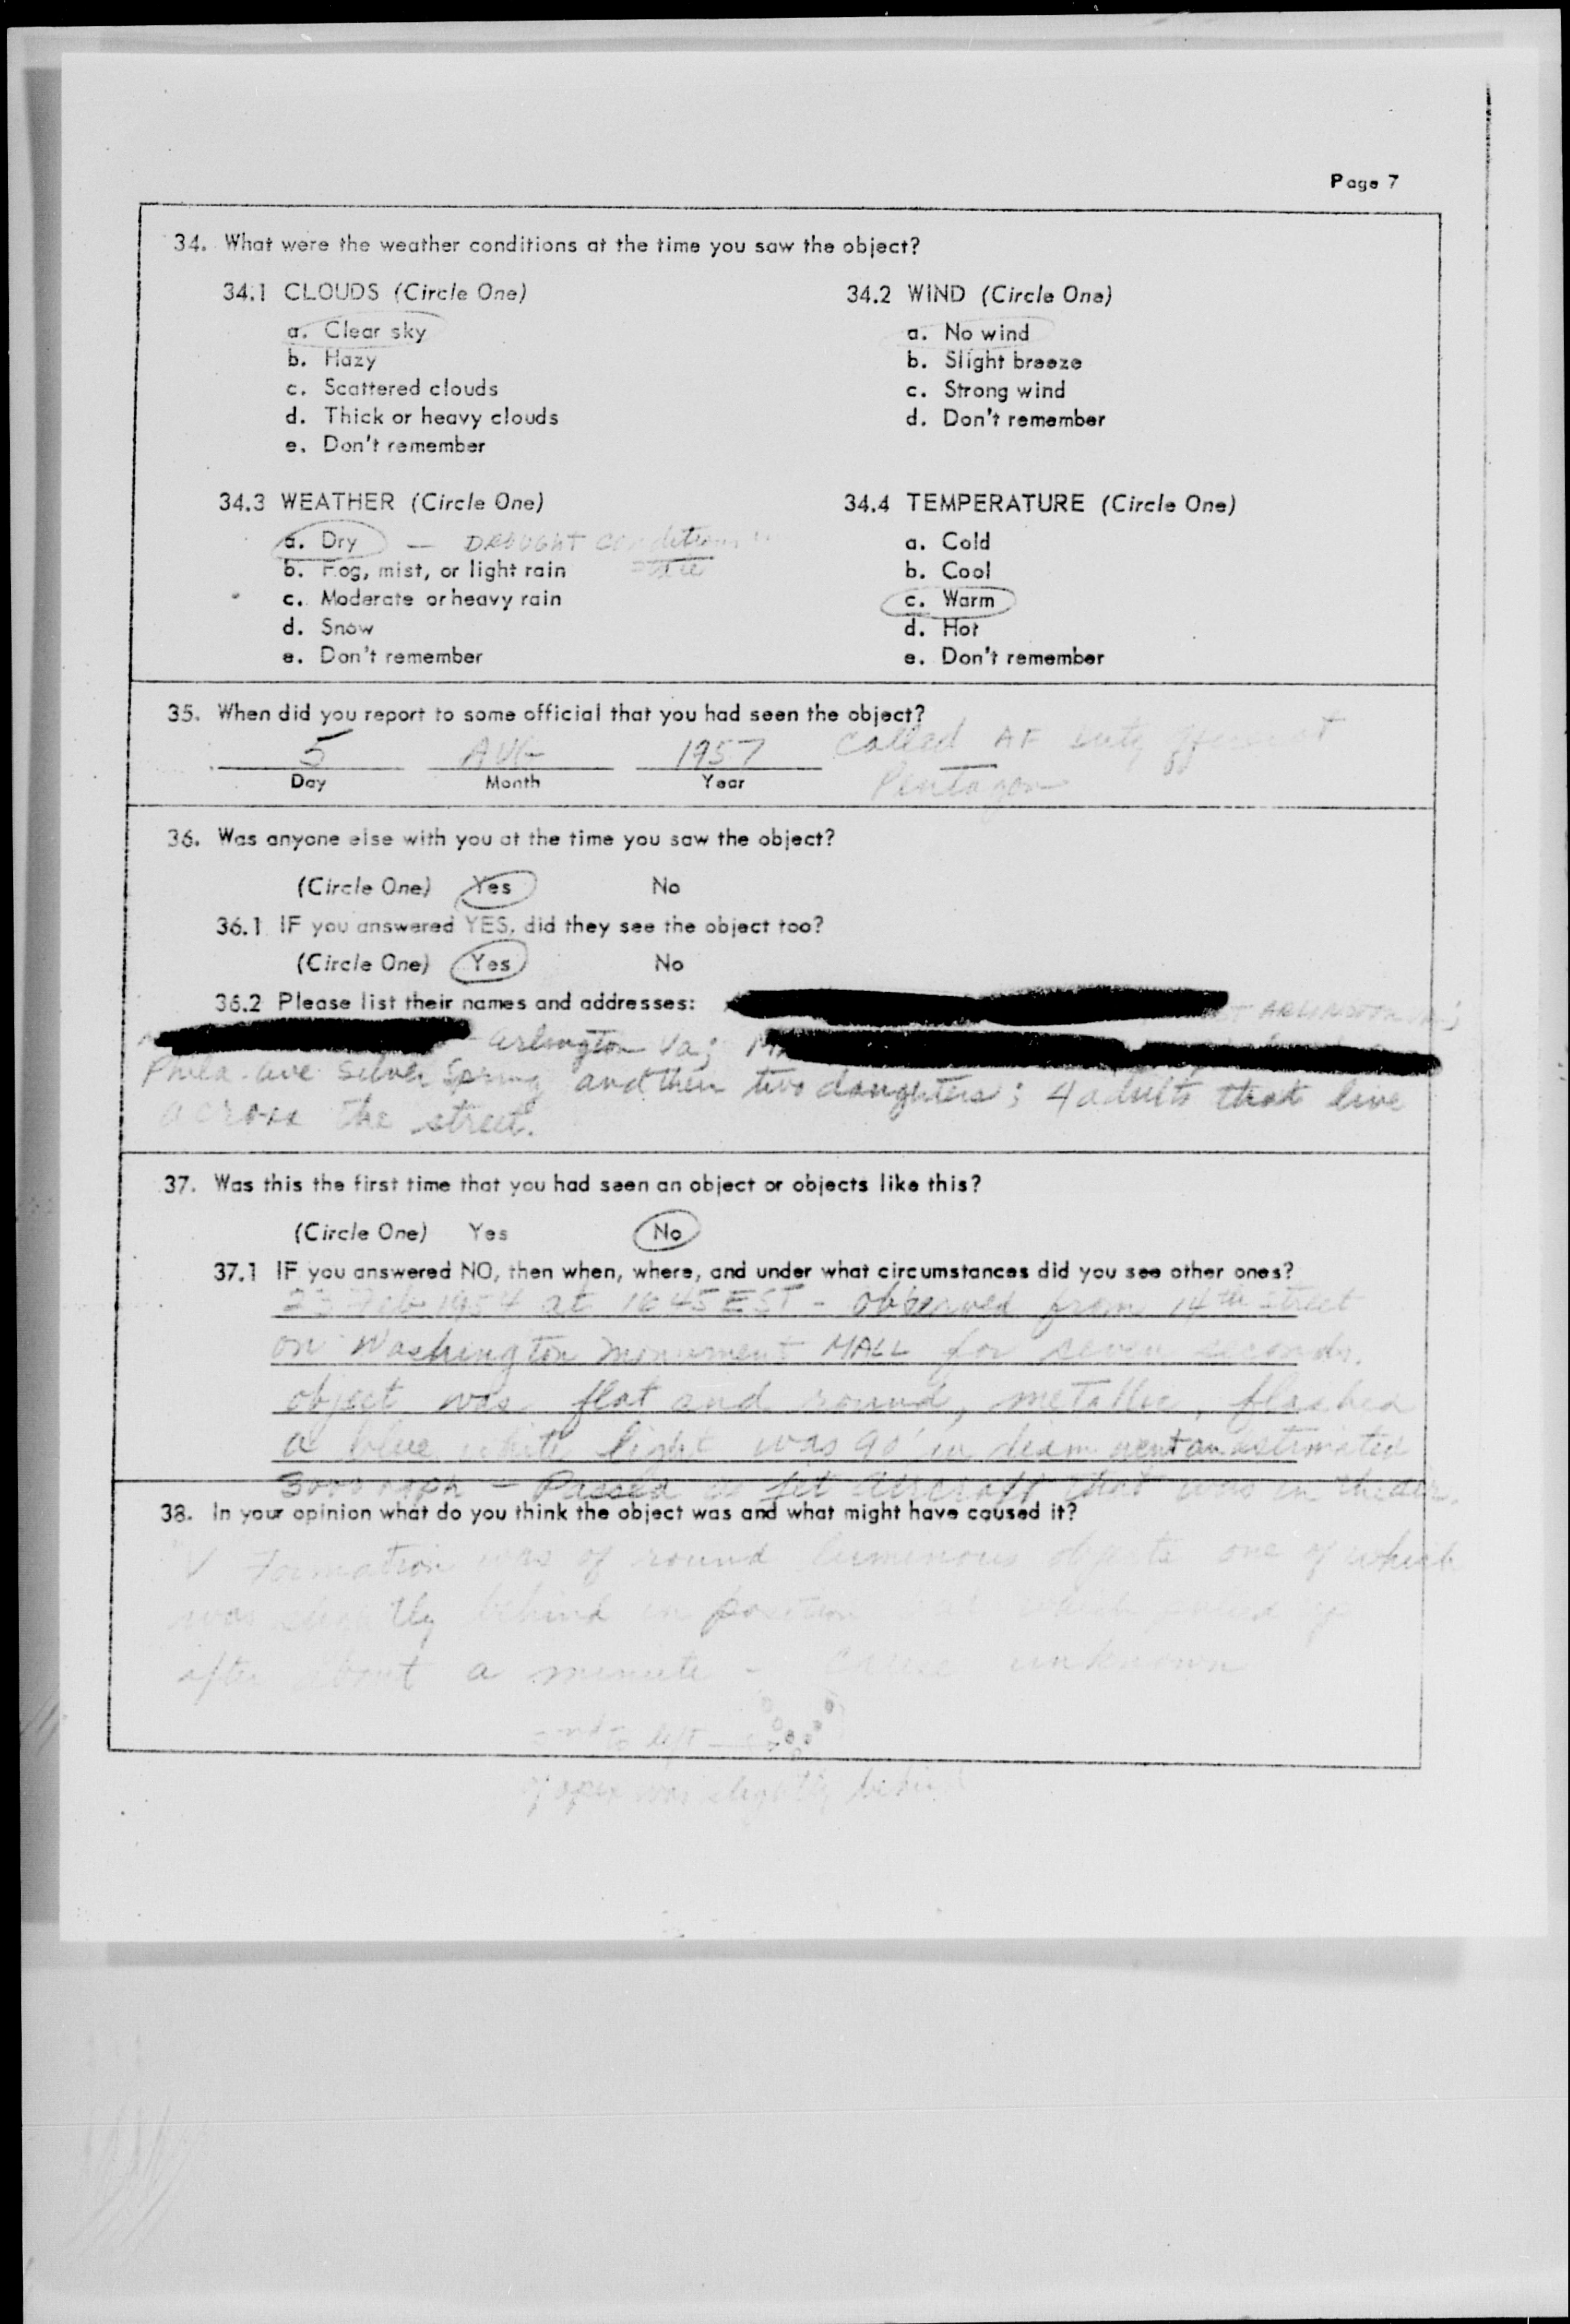 Page 7
34. What were the weather conditions at the time you saw the object?
34.1 CLOUDS (Circle One)
a. Clear sky
b. Hazy
c. Scattered clouds
d. Thick or heavy clouds
e. Don't remember
34.2 WIND (Circle One)
a. No wind
b. Slight breeze
c. Strong wind
d. Don't remember
34.3 WEATHER (Circle One)
a. Dry — DROUGHT conditions
b. Fog, mist, or light rain
c. Moderate or heavy rain
d. Snow
e. Don't remember
34.4 TEMPERATURE (Circle One)
a. Cold
b. Cool
c. Warm
d. Hot
e. Don't remember
35. When did you report to some official that you had seen the object?
5 AUG 1957 called AF duty officer at
Day Month Year Pentagon
36. Was anyone else with you at the time you saw the object?
(Circle One) Yes No
36.1 IF you answered YES, did they see the object too?
(Circle One) Yes No
36.2 Please list their names and addresses:
ST ARLINGTON VA;
Arlington Va;
Phila. ave Silver Spring and their two daughters; 4 adults that live
across the street.
37. Was this the first time that you had seen an object or objects like this?
(Circle One) Yes No
37.1 IF you answered NO, then when, where, and under what circumstances did you see other ones?
Feb 1954 at 1645 EST - observed from 14th street
on Washington monument MALL for seven seconds.
object was flat and round, metallic, flashed
a blue white light was 90' in diam went an estimated
3000 mph - Passed a jet aircraft that was in the air.
38. In your opinion what do you think the object was and what might have caused it?
V Formation was of round luminous objects one of which
was slightly behind in position
after about a minute - cause unknown
to left
of apex was slightly behind